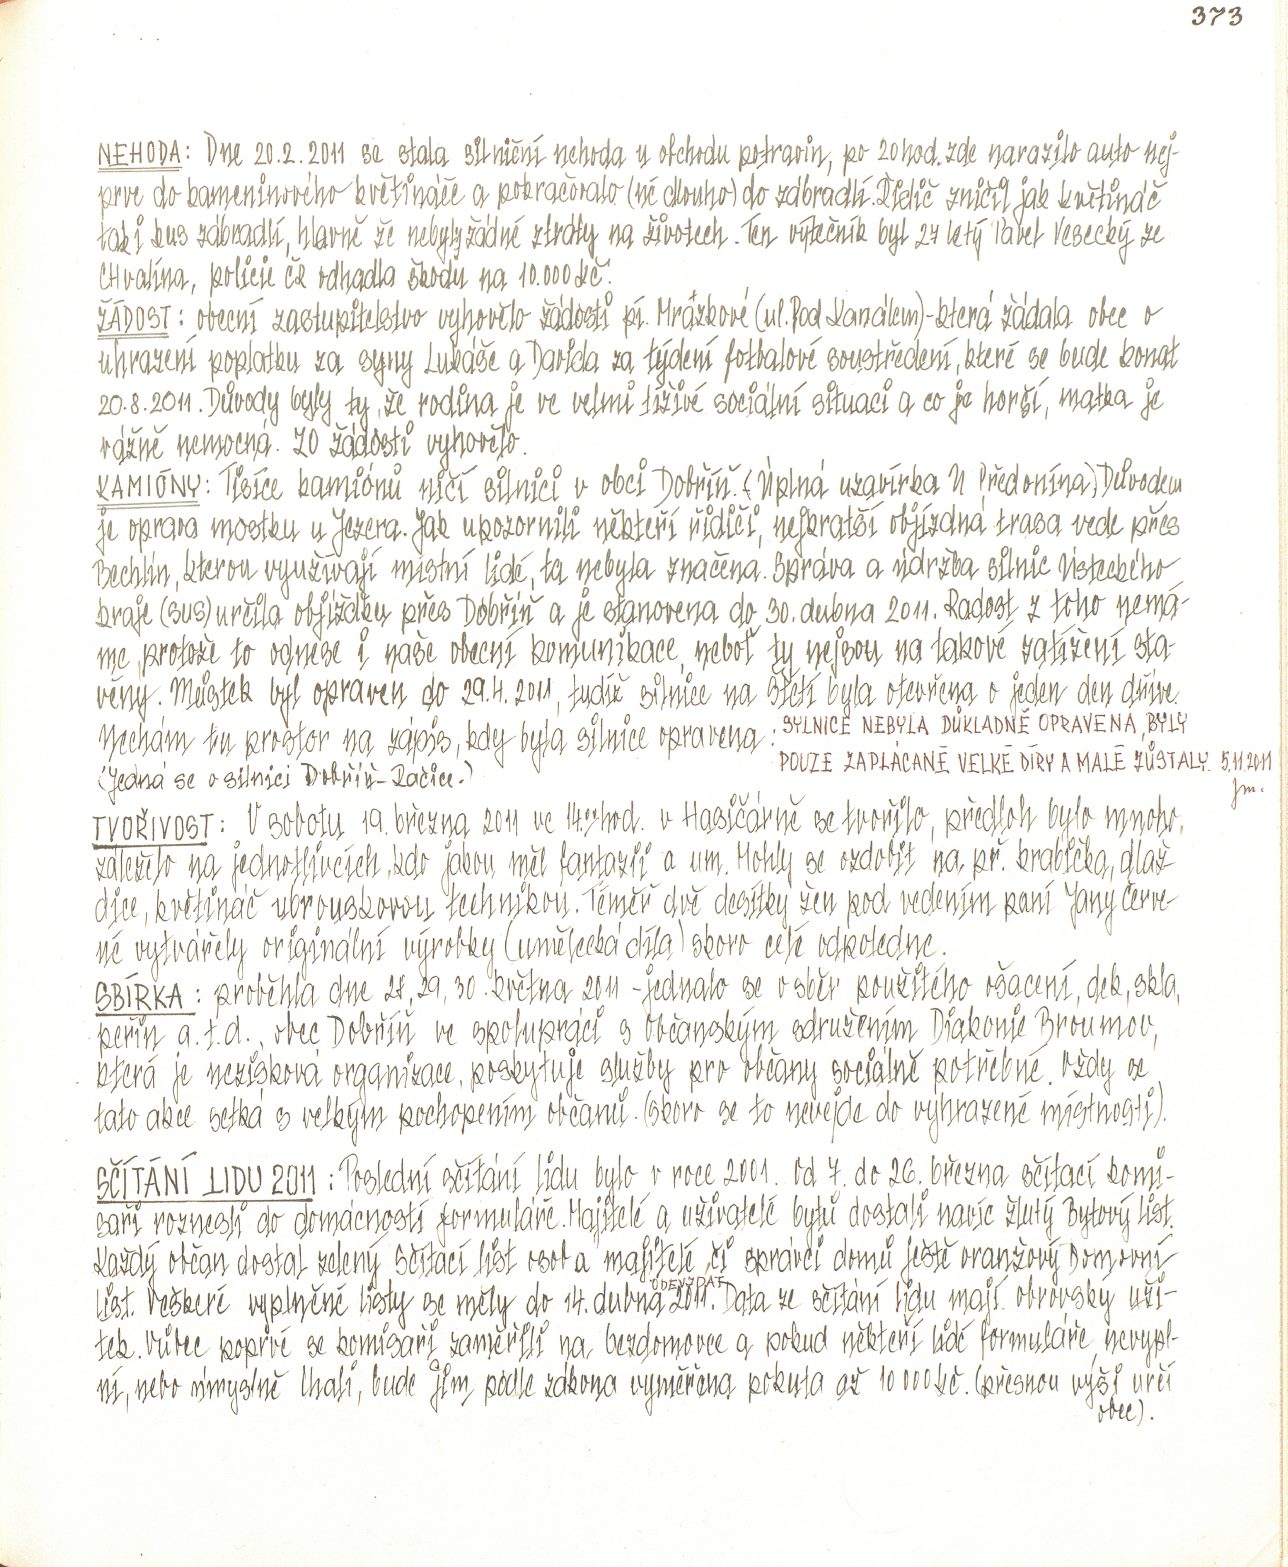 373
NEHODA: Dne 20.2.2011 se stala silniční nehoda u obchodu potravin, po 20hod. zde narazilo auto nej-
prve do kameninového květináče a pokračovalo (né dlouho) do zábradlí. Řidič zničil jak květináč
tak i kus zábradlí, hlavně že nebyly žádné ztráty na životech. Ten výtečník byl 27 letý Pavel Vesecký ze
Chvalína, policie ČR odhadla škodu na 10.000 Kč.
ŽÁDOST: obecní zastupitelstvo vyhovělo žádosti pí. Mrázkové (ul. Pod Kanálem) - která žádala obec o
uhrazení poplatku za syny Lukáše a Davida za týdení fotbalové soustředění, které se bude konat
20.8.2011. Důvody byly ty, že rodina je ve velmi tíživé sociální situaci a co je horší, matka je
vážně nemocná. ZO žádosti vyhovělo.
KAMIÓNY: Tisíce kamiónů ničí silnici v obci Dobříň. (Úplná uzavírka U Předonína) Důvodem
je oprava mostku u Jezera. Jak upozornili někteří řidiči, nejkratší objízdná trasa vede přes
Bechlín, kterou využívají místní lidé, ta nebyla značena. Správa a údržba silnic Ústeckého
kraje (SUS) určila objížďku přes Dobříň a je stanovena do 30. dubna 2011. Radost z toho nemá-
me, protože to odnese i naše obecní komunikace, neboť ty nejsou na takové zatížení sta-
věny. Můstek byl opraven do 29.4.2011, tudíž silnice na Štětí byla otevřena o jeden den dříve.
Nechám tu prostor na zápis, kdy byla silnice opravena: SYLNICE NEBYLA DŮKLADNĚ OPRAVENA, BYLY
POUZE ZAPLÁCANÉ VELKÉ DÍRY A MALÉ ZŮSTALY. 5.11.2011
(Jedná se o silnici Dobříň - Račice.)
Jm.
TVOŘIVOST: V sobotu 19. března 2011 ve 14.00 hod. v Hasičárně se tvořilo, předloh bylo mnoho,
záleželo na jednotlivcích, kdo jakou měl fantazii a um. Mohly se ozdobit na př. krabička, dlaž-
dice, květináč ubrouskovou technikou. Téměř dvě desítky žen pod vedením paní Jany Červe-
né vytvářely originální výrobky (umělecká díla) skoro celé odpoledne.
SBÍRKA: proběhla dne 28, 29, 30. května 2011 - jednalo se o sběr použitého ošacení, dek, skla,
peřin a.t.d., obec Dobříň ve spolupráci s Občanským sdružením Diakonie Broumov,
která je nezisková organizace, poskytuje služby pro občany sociálně potřebné. Vždy se
tato akce setká s velkým pochopením občanů. (skoro se to nevejde do vyhrazené místnosti).
SČÍTÁNÍ LIDU 2011: Poslední sčítání lidu bylo v roce 2001. Od 7. do 26. března sčítací komi-
saři roznesli do domácností formuláře. Majitelé a uživatelé bytů dostali navíc žlutý Bytový list.
Každý občan dostal zelený Sčítací list osob a majitelé či správci domů ještě oranžový Domovní
list. Veškeré vyplněné listy se měly do 14. dubna 2011. Data ze sčítání lidu mají obrovský uži-
ODEVZDAT
tek. Vůbec poprvé se komisaři zaměřili na bezdomovce a pokud někteří lidé formuláře nevypl-
ní, nebo úmyslně lhali, bude jim podle zákona vyměřena pokuta až 10 000 Kč. (přesnou výši určí
obec).